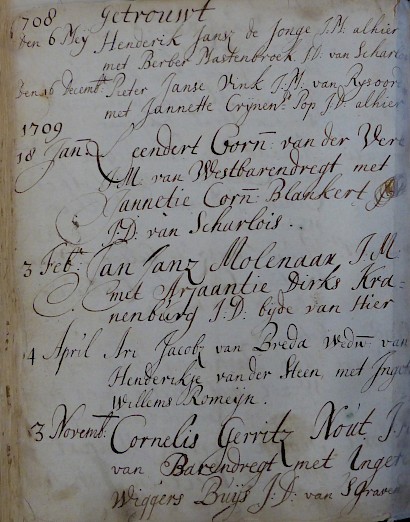 1708 getrouwt
Den 6 Mey Henderik Janz de Jonge J.M. alhier
met Berber Mastenbroek J.D. van Scharlo
Den 16 Decemb: Pieter Janse Vink J.M. van Rysoort
met Jannette Crynen Pop J.D. alhier
1709
18 Janz Leendert Corn: van der Vere
J.M. van Westbarendregt met
Jannetie Corn: Blankert
J:D: van Scharlois.
3 Feb: Jan Janz Molenaar J.M.
met Arjaantie Dirks Kra-
nenburg J:D: byde van Hier
4 April Ari Jacobz van Breda Wedn: van
Henderikje vander Steen, met Inget
Willems Romeijn.
3 Novemb: Cornelis Gerritz Nout J.
van Barendregt met Inger
Wiggers Buijs J:D: van SGraven